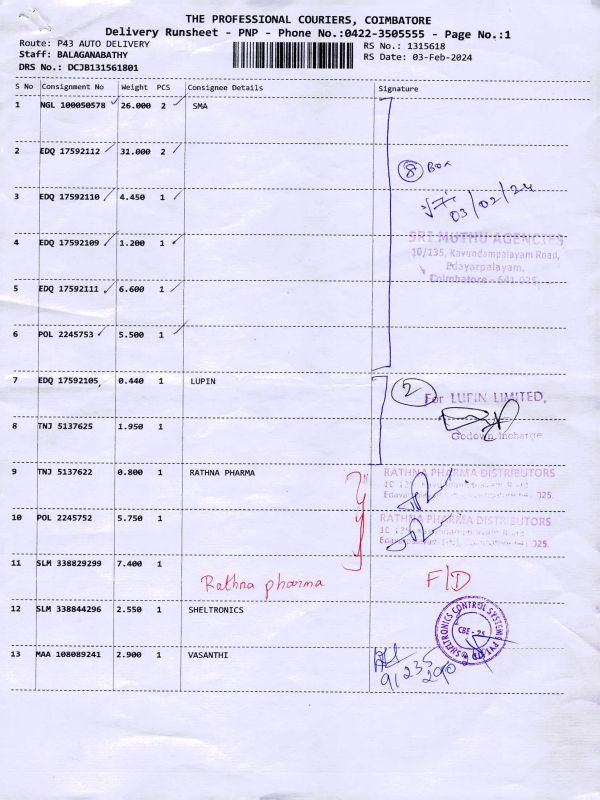 THE PROFESSIONAL COURIERS, COIMBATORE
Delivery Runsheet - PNP - Phone No.:0422-3505555 - Page No.:1
Route: P43 AUTO DELIVERY RS No.: 1315618
Staff: BALAGANABATHY RS Date: 03-Feb-2024
DRS No.: DCJB131561801
S No Consignment No Weight PCS Consignee Details Signature
1 NGL 100050578 26.000 2 SMA
2 EDQ 17592112 31.000 2
8 Box
3 EDQ 17592110 4.450 1
03/02/24
4 EDQ 17592109 1.200 1
SRI MUTHU AGENCIES
10/135, Kavundampalayam Road,
Edayarpalayam,
Coimbatore - 641 025.
5 EDQ 17592111 6.600 1
6 POL 2245753 5.500 1
7 EDQ 17592105 0.440 1 LUPIN
2
For LUPIN LIMITED,
8 TNJ 5137625 1.950 1
Godown Incharge
9 TNJ 5137622 0.800 1 RATHNA PHARMA
RATHNA PHARMA DISTRIBUTORS
10 POL 2245752 5.750 1
RATHNA PHARMA DISTRIBUTORS
11 SLM 338829299 7.400 1
Rathna pharma F/D
12 SLM 338844296 2.550 1 SHELTRONICS
SHELTRONICS CONTROL SYSTEMS PVT
CBE - 25
13 MAA 108089241 2.900 1 VASANTHI
91235